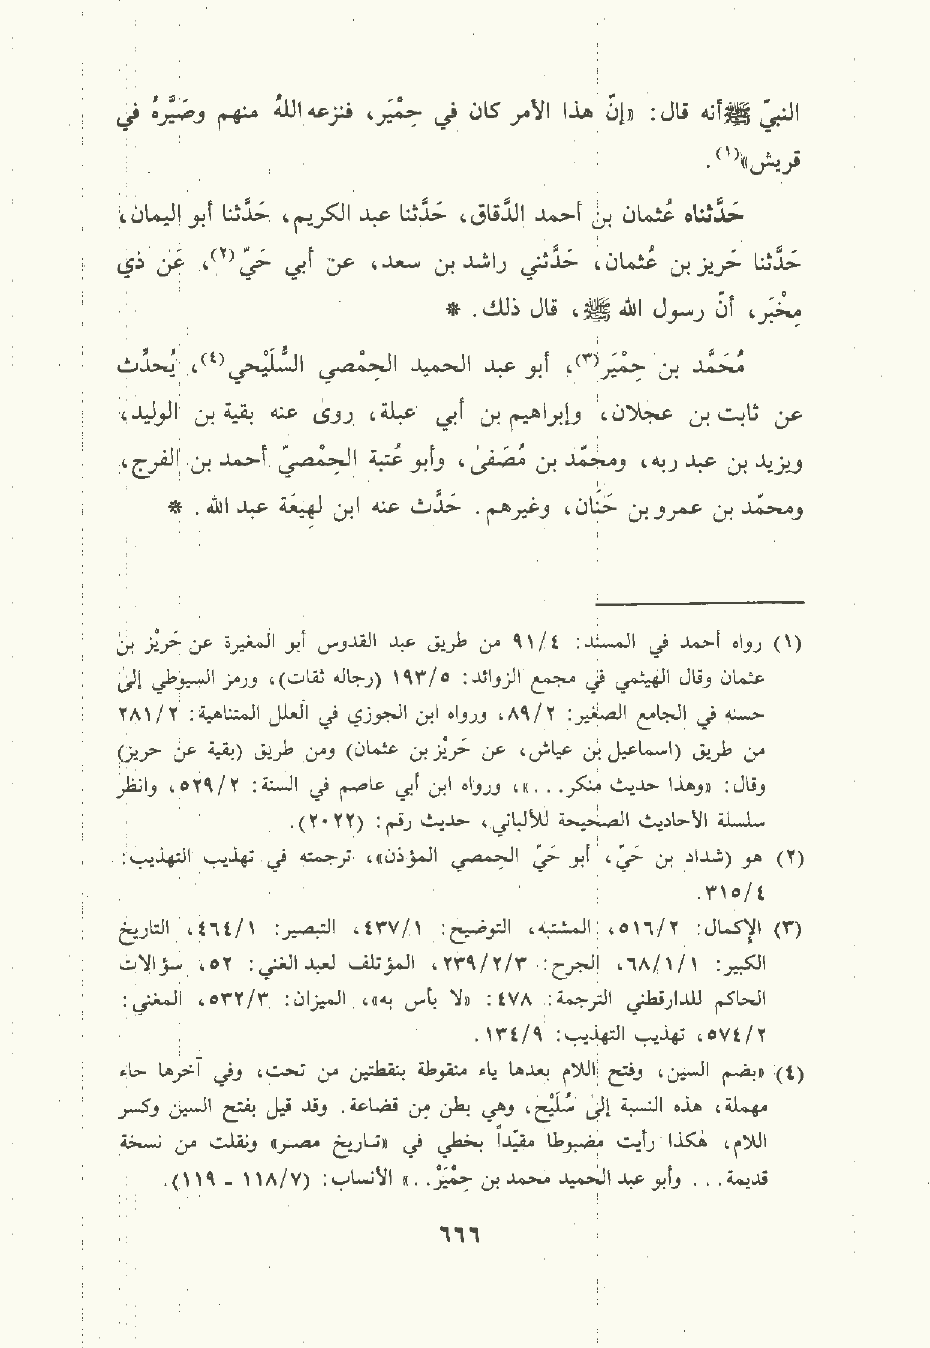 النبيّ ﷺ أنه قال: «إنّ هذا الأمر كان في حِمْيَر، فنزعه اللهُ منهم وصَيَّرهُ في
قريش»(١).
حَدَّثناه عُثمان بن أحمد الدَّقاق، حَدَّثنا عبد الكريم، حَدَّثنا أبو اليمان،
حَدَّثنا حَريز بن عُثمان، حَدَّثني راشد بن سعد، عن أبي حَيّ(٢)، عَن ذي
مِخْبَر، أنّ رسول الله ﷺ، قال ذلك. *
مُحَمَّد بن حِمْيَر(٣)، أبو عبد الحميد الحِمْصي السُّلَيْحي(٤)، يُحدِّث
عن ثابت بن عجلان، وإبراهيم بن أبي عبلة، روى عنه بقية بن الوليد،
ويزيد بن عبد ربه، ومحمّد بن مُصَفىٰ، وأبو عُتبة الحِمْصيّ أحمد بن الفرج،
ومحمّد بن عمرو بن حَنَان، وغيرهم. حَدَّث عنه ابن لهِيعَة عبد الله. *
(١) رواه أحمد في المسند: ٩١/٤ من طريق عبد القدوس أبو المغيرة عن حَرِيْز بن
عثمان وقال الهيثمي في مجمع الزوائد: ١٩٣/٥ (رجاله ثقات)، ورمز السيوطي إلى
حسنه في الجامع الصغير: ٨٩/٢، ورواه ابن الجوزي في العلل المتناهية: ٢٨١/٢
من طريق (اسماعيل بن عياش، عن حَرِيْز بن عثمان) ومن طريق (بقية عن حريز)
وقال: «وهذا حديث منكر...»، ورواه ابن أبي عاصم في السنة: ٥٢٩/٢، وانظر
سلسلة الأحاديث الصحيحة للألباني، حديث رقم: (٢٠٢٢).
(٢) هو (شداد بن حَيّ، أبو حَيّ الحِمصي المؤذن»، ترجمته في تهذيب التهذيب:
٣١٥/٤.
(٣) الإكمال: ٥١٦/٢، المشتبه، التوضيح: ٤٣٧/١، التبصير: ٤٦٤/١، التاريخ
الكبير: ٦٨/١/١، الجرح: ٢٣٩/٢/٣، المؤتلف لعبد الغني: ٥٢، سؤالات
الحاكم للدارقطني الترجمة: ٤٧٨: «لا بأس به»، الميزان: ٥٣٢/٣، المغني:
٥٧٤/٢، تهذيب التهذيب: ١٣٤/٩.
(٤) «بضم السين، وفتح اللام بعدها ياء منقوطة بنقطتين من تحت، وفي آخرها حاء
مهملة، هذه النسبة إلى سُلَيْح، وهي بطن مِن قضاعة. وقد قيل بفتح السين وكسر
اللام، هكَذا رأيت مضبوطا مقيّداً بخطي في «تاريخ مصر» ونقلت من نسخة
قديمة... وأبو عبد الحميد محمد بن حِمْيَرْ..» الأنساب: (١١٨/٧ - ١١٩).
٦٦٦